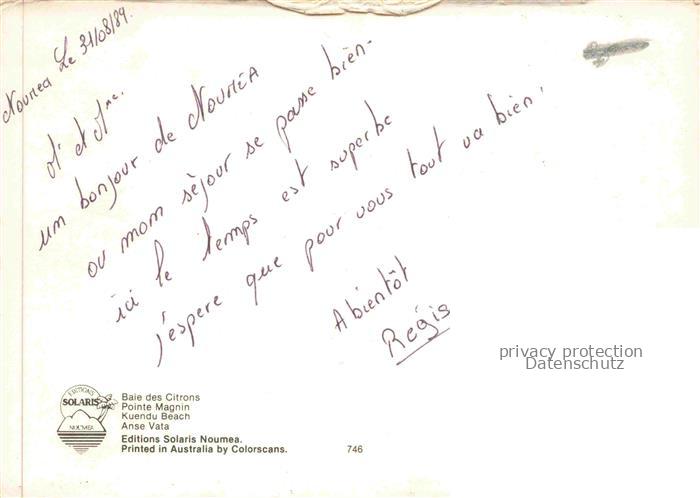 Nouméa Le 31/08/89.
M. & Mme.
un bonjour de NOUMÉA
ou mon séjour se passe bien-
ici le temps est superbe
j'espere que pour vous tout va bien.
A bientôt
Régis
privacy protection
Datenschutz
EDITIONS
SOLARIS
NOUMEA
Baie des Citrons
Pointe Magnin
Kuendu Beach
Anse Vata
Editions Solaris Noumea.
Printed in Australia by Colorscans.
746